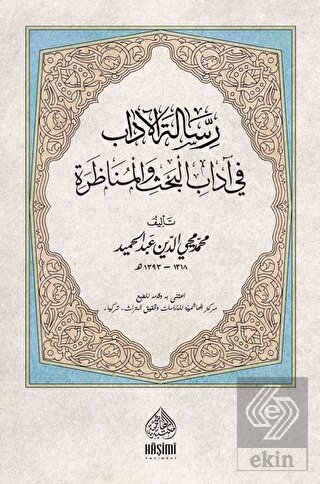 رسالة الآداب
في آداب البحث والمناظرة
تأليف
محمد محيي الدين عبد الحميد
١٣١٨ - ١٣٩٣ هـ
اعتنى به وقدمه للطبع
مركز الهاشمية للدراسات وتحقيق التراث - تركيا.
HÂŞİMİ
YAYINEVİ
e
ekin